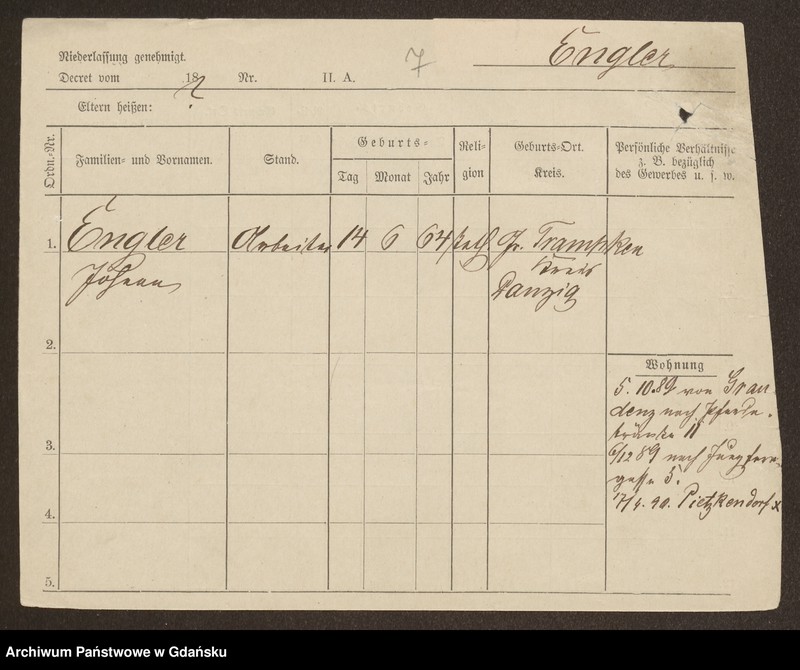 Niederlassung genehmigt.
Engler
7
Decret vom 18 Nr. II. A.
?
Eltern heißen:
Ordn.-Nr.
Familien- und Vornamen.
Stand.
Geburts-
Tag Monat Jahr
Reli-
gion
Geburts-Ort.
Kreis.
Persönliche Verhältnisse
z. B. bezüglich
des Gewerbes u. s. w.
1. Engler Arbeiter 14 6 64 kath Gr. Trampken
Johann
Kreis
Danzig
2.
3.
4.
5.
Wohnung
5. 10. 89 von Grau-
denz nach Pferde-
tränke 11
6/12 89 nach Jungfern-
gasse 5.
7/4. 90. Pietzkendorf x
Archiwum Państwowe w Gdańsku